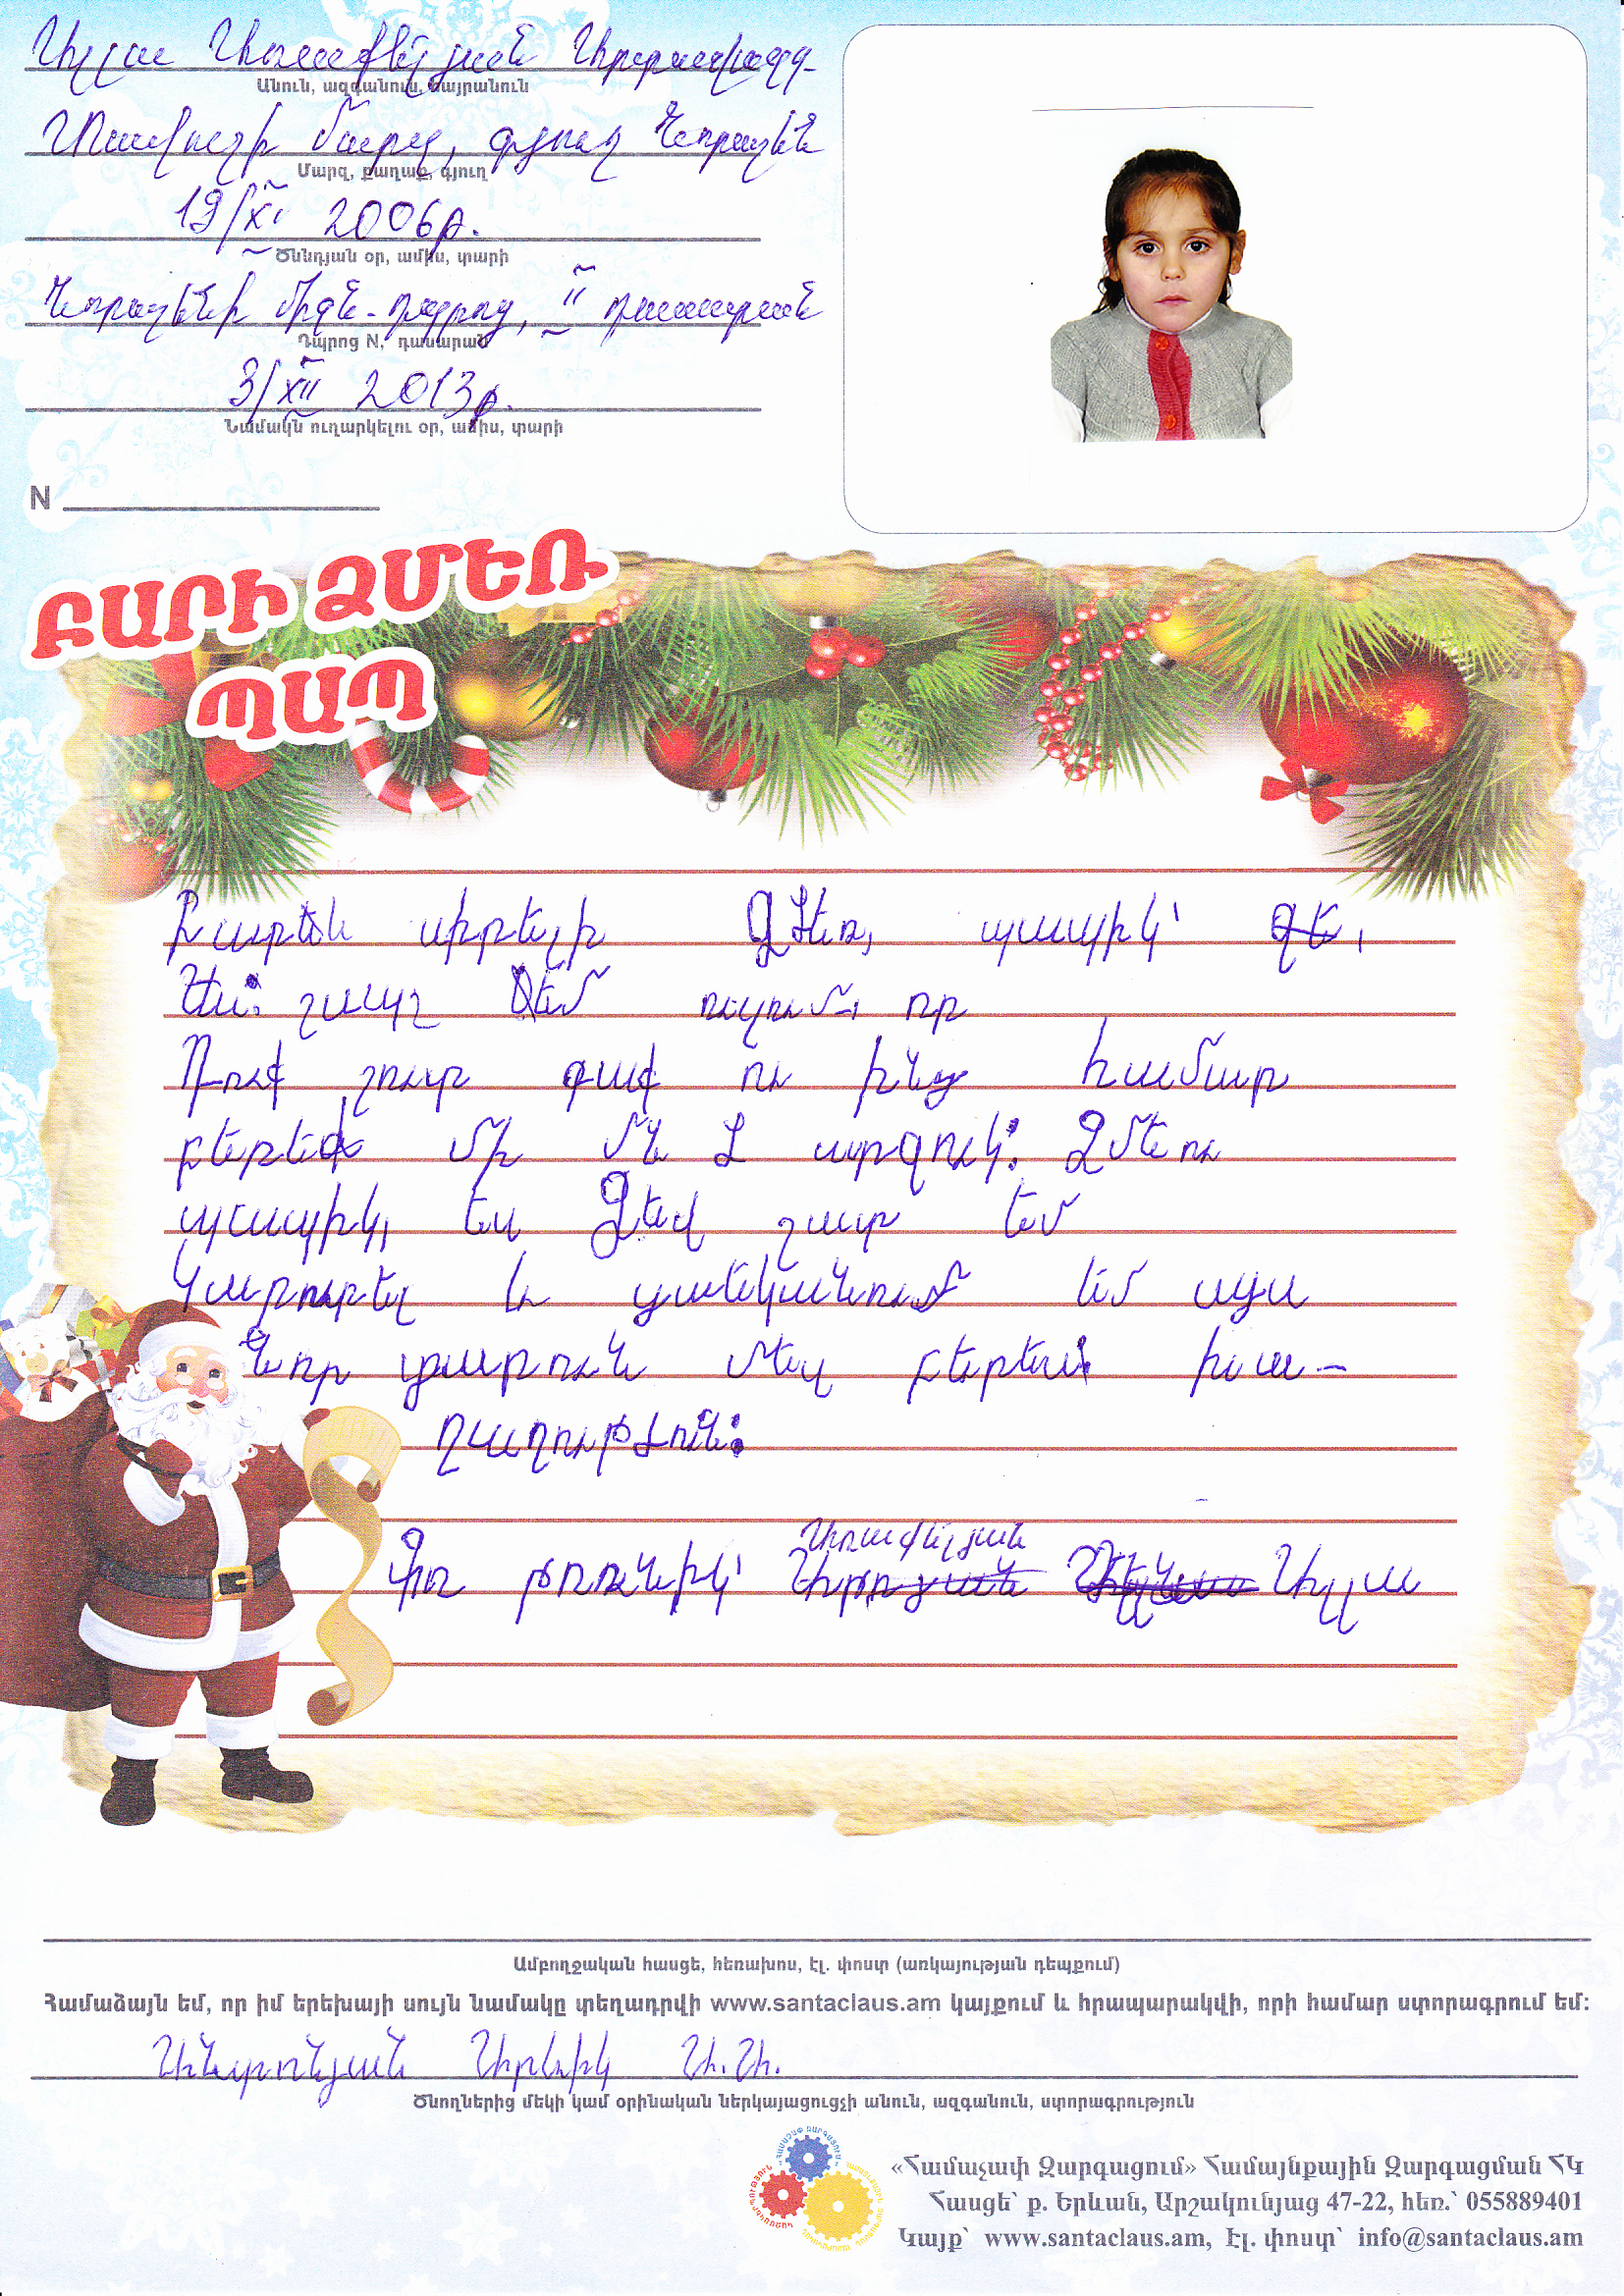 Ալլա Առաքելյան Արտավազդ
Անուն, ազգանուն, հայրանուն
Տավուշի մարզ, գյուղ Նորաշեն
Մարզ, քաղաք, գյուղ
19/XI 2006թ.
Ծննդյան օր, ամիս, տարի
Նորաշենի միջն-դպրոց, II դասարան
Դպրոց N, դասարան
3/XII 2013թ.
Նամակն ուղարկելու օր, ամիս, տարի
N
ԲԱՐԻ ՁՄԵՌ
ՊԱՊ
Բարեն սիրելի Ձմեռ, պապիկ՝
Ես շատ եմ ուզում, որ
Դուք շուտ գաք ու ինձ համար
բերեք մի մն արջուկ: Ձմեռ
պապիկ, ես Ձեզ շատ եմ
կարոտել և ցանկանում եմ այս
նոր տարուն մեզ բերես խա-
ղաղություն:
Քո թոռնիկ՝ Առաքելյան Ալլա
Ամբողջական հասցե, հեռախոս, էլ. փոստ (առկայության դեպքում)
Համաձայն եմ, որ իմ երեխայի սույն նամակը տեղադրվի www.santaclaus.am կայքում և հրապարակվի, որի համար ստորագրում եմ:
Անտոնյան Արևիկ Ա.Ա.
Ծնողներից մեկի կամ օրինական ներկայացուցչի անուն, ազգանուն, ստորագրություն
«Համաչափ Զարգացում» Համայնքային Զարգացման ՀԿ
Հասցե՝ ք. Երևան, Արշակունյաց 47-22, հեռ.՝ 055889401
Կայք՝ www.santaclaus.am, Էլ. փոստ՝ info@santaclaus.am